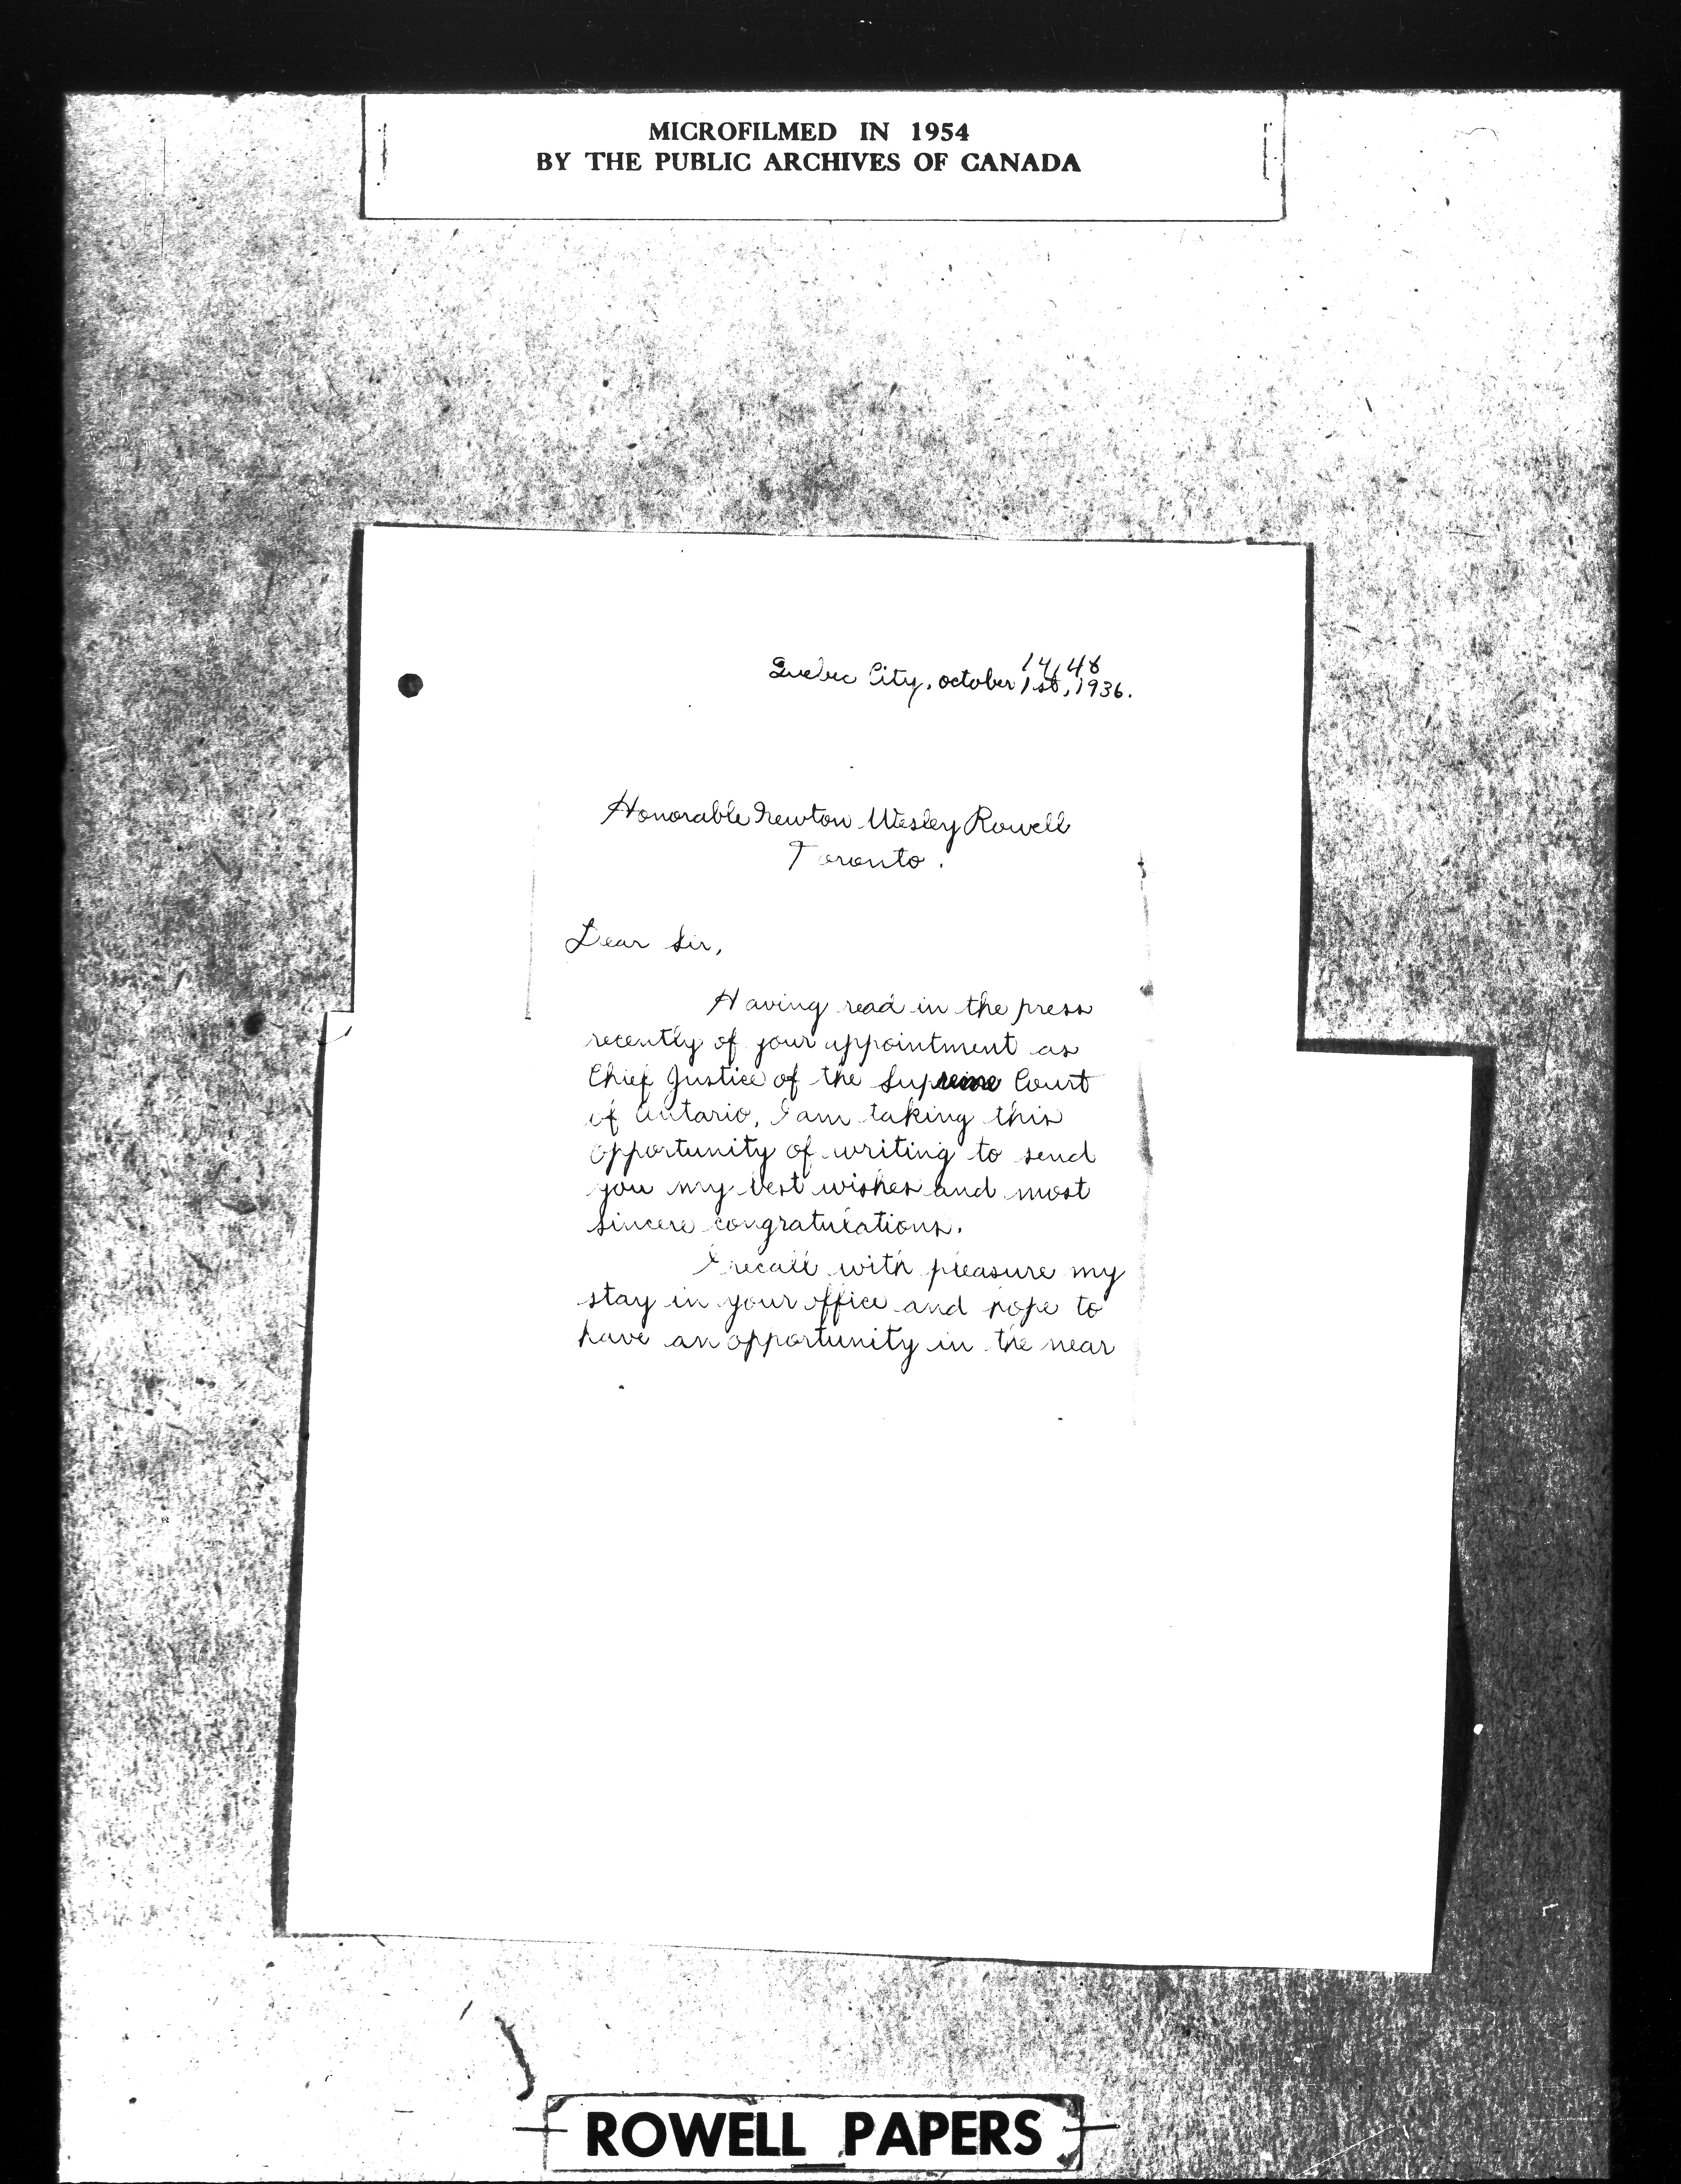 MICROFILMED IN 1954
BY THE PUBLIC ARCHIVES OF CANADA
14,48
Quebec City, october 1st, 1936.
Honorable Newton Wesley Rowell
Toronto.
Dear Sir,
Having read in the press
recently of your appointment as
Chief Justice of the Supreme Court
of Ontario, I am taking this
opportunity of writing to send
you my best wishes and most
sincere congratulations.
I recall with pleasure my
stay in your office and hope to
have an opportunity in the near
ROWELL PAPERS